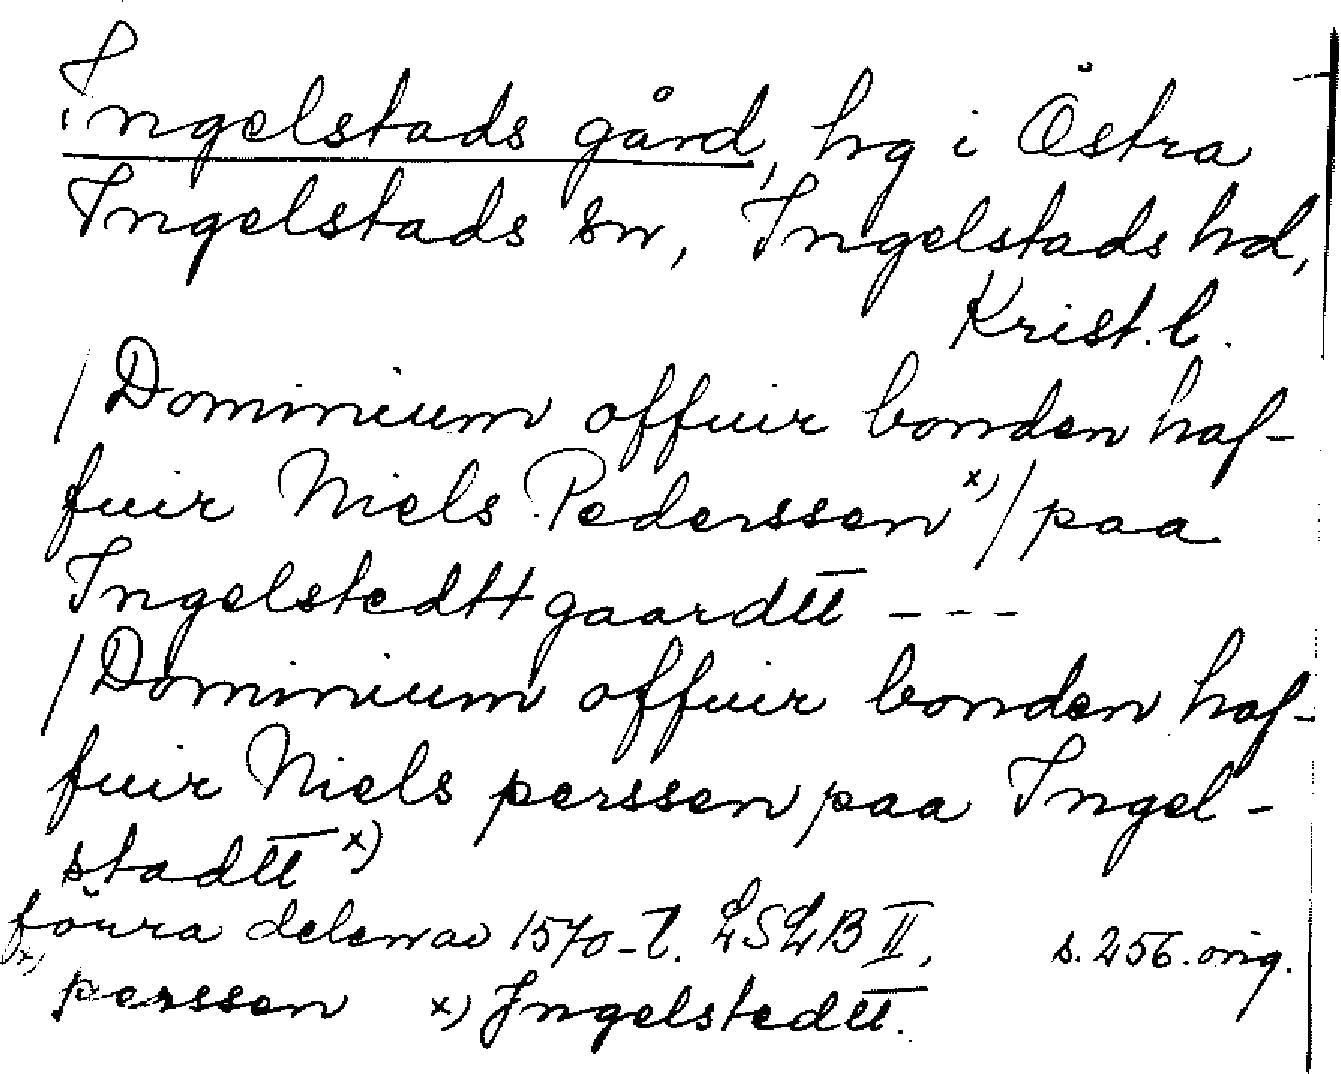 Ingelstads gård, hg i Östra
Ingelstads sn, Ingelstads hd,
Krist. l.
/Dominium offuir bonden haf-
fuir Niels Pederssen x)/ paa
Ingelstedtt gaardtt - - -
/Dominium offuir bonden haf-
fuir Niels perssen paa Ingel-
stadtt x)
förra delen av 1570-t. LSLB II, s. 256. orig.
x) perssen x) Ingelstedtt.